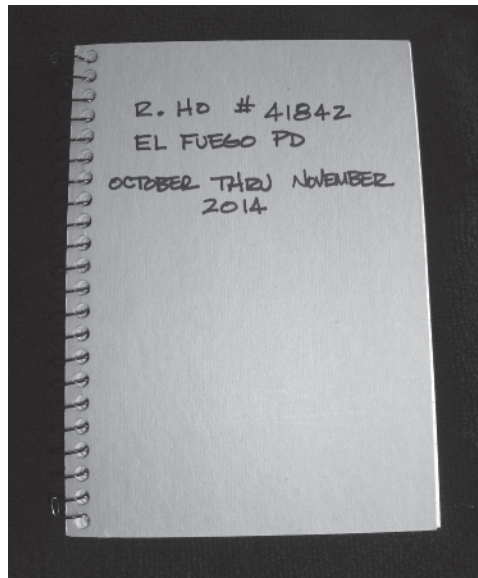 R. HO # 41842
EL FUEGO PD
OCTOBER THRU NOVEMBER
2014